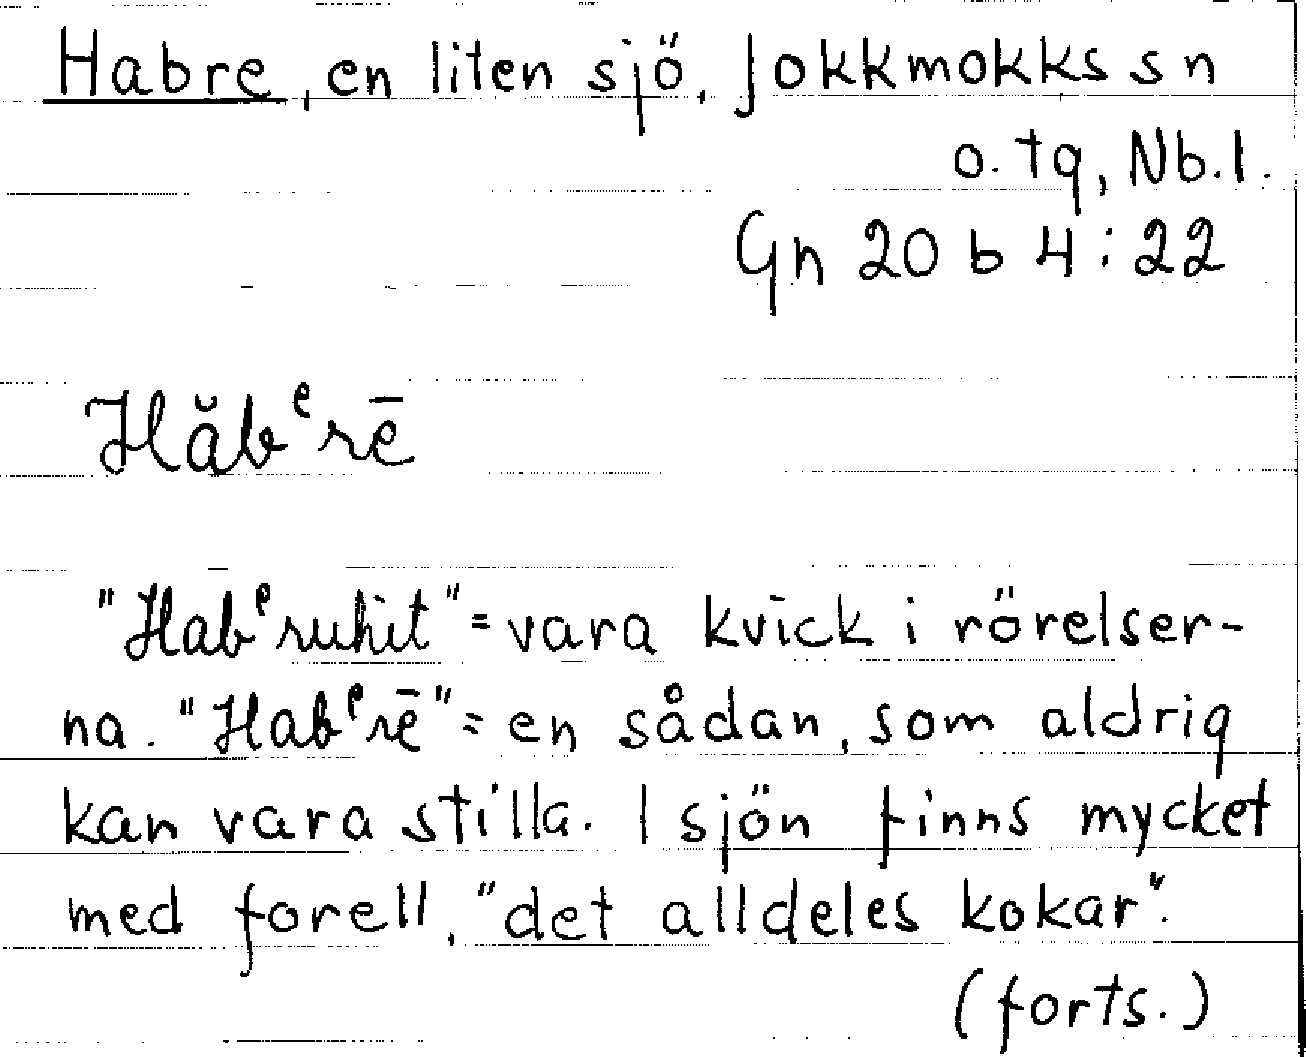 Habre, en liten sjö, Jokkmokks sn
o. tg, Nb.l.
Gn 20 b 4:22
Hăbᵉrē
"Habᵉruhit" = vara kvick i rörelser-
na. "Habᵉrē" = en sådan, som aldrig
kan vara stilla. I sjön finns mycket
med forell, "det alldeles kokar".
(forts.)